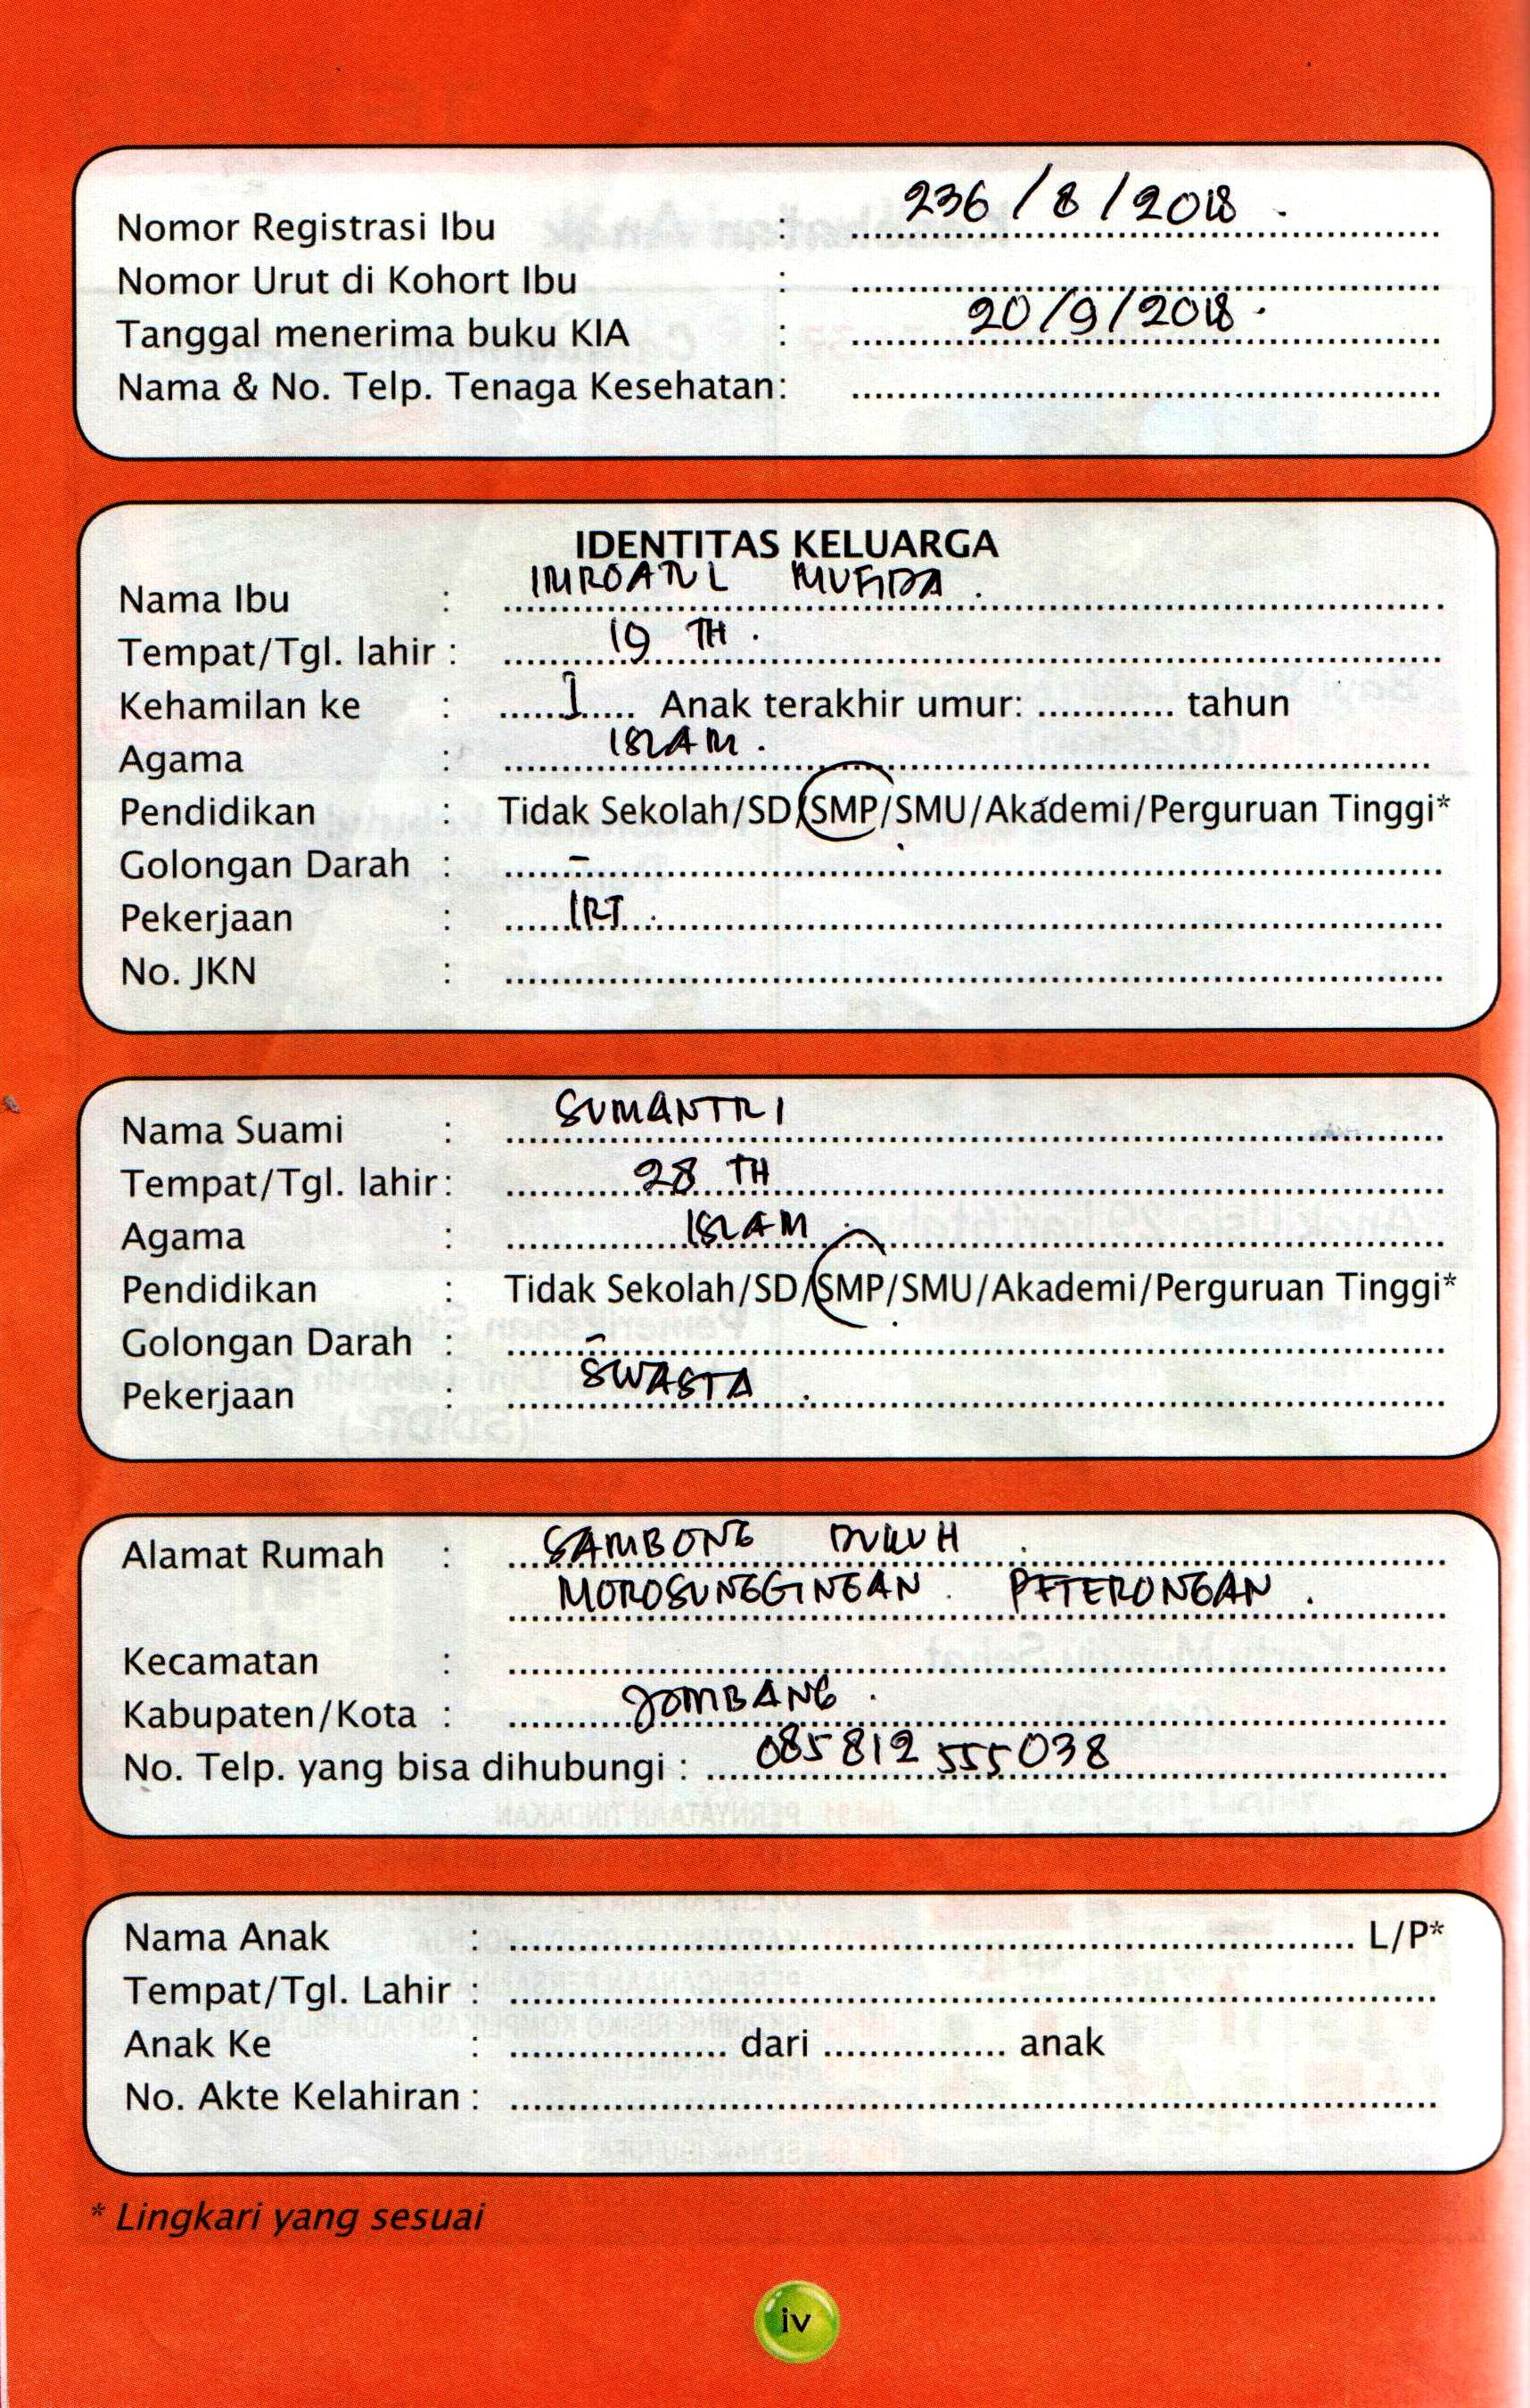 Nomor Registrasi Ibu : 236 / 8 / 2018 .
Nomor Urut di Kohort Ibu : ........................................
Tanggal menerima buku KIA : 20/9/2018 .
Nama & No. Telp. Tenaga Kesehatan: ........................................
IDENTITAS KELUARGA
Nama Ibu : IMROATUL MUFIDA .
Tempat/Tgl. lahir : 19 TH .
Kehamilan ke : 1 Anak terakhir umur: ............ tahun
Agama : ISLAM .
Pendidikan : Tidak Sekolah/SD/SMP/SMU/Akademi/Perguruan Tinggi*
Golongan Darah : -
Pekerjaan : IRT .
No. JKN : ........................................
Nama Suami : SUMANTRI
Tempat/Tgl. lahir : 28 TH
Agama : ISLAM .
Pendidikan : Tidak Sekolah/SD/SMP/SMU/Akademi/Perguruan Tinggi*
Golongan Darah : -
Pekerjaan : SWASTA .
Alamat Rumah : SAMBONG DUKUH .
MOROSUNGGINGAN . PETERONGAN .
Kecamatan : ........................................
Kabupaten/Kota : JOMBANG .
No. Telp. yang bisa dihubungi : 085 812 555 038
Nama Anak : ........................................ L/P*
Tempat/Tgl. Lahir : ........................................
Anak Ke : ................... dari ................ anak
No. Akte Kelahiran : ........................................
* Lingkari yang sesuai
iv